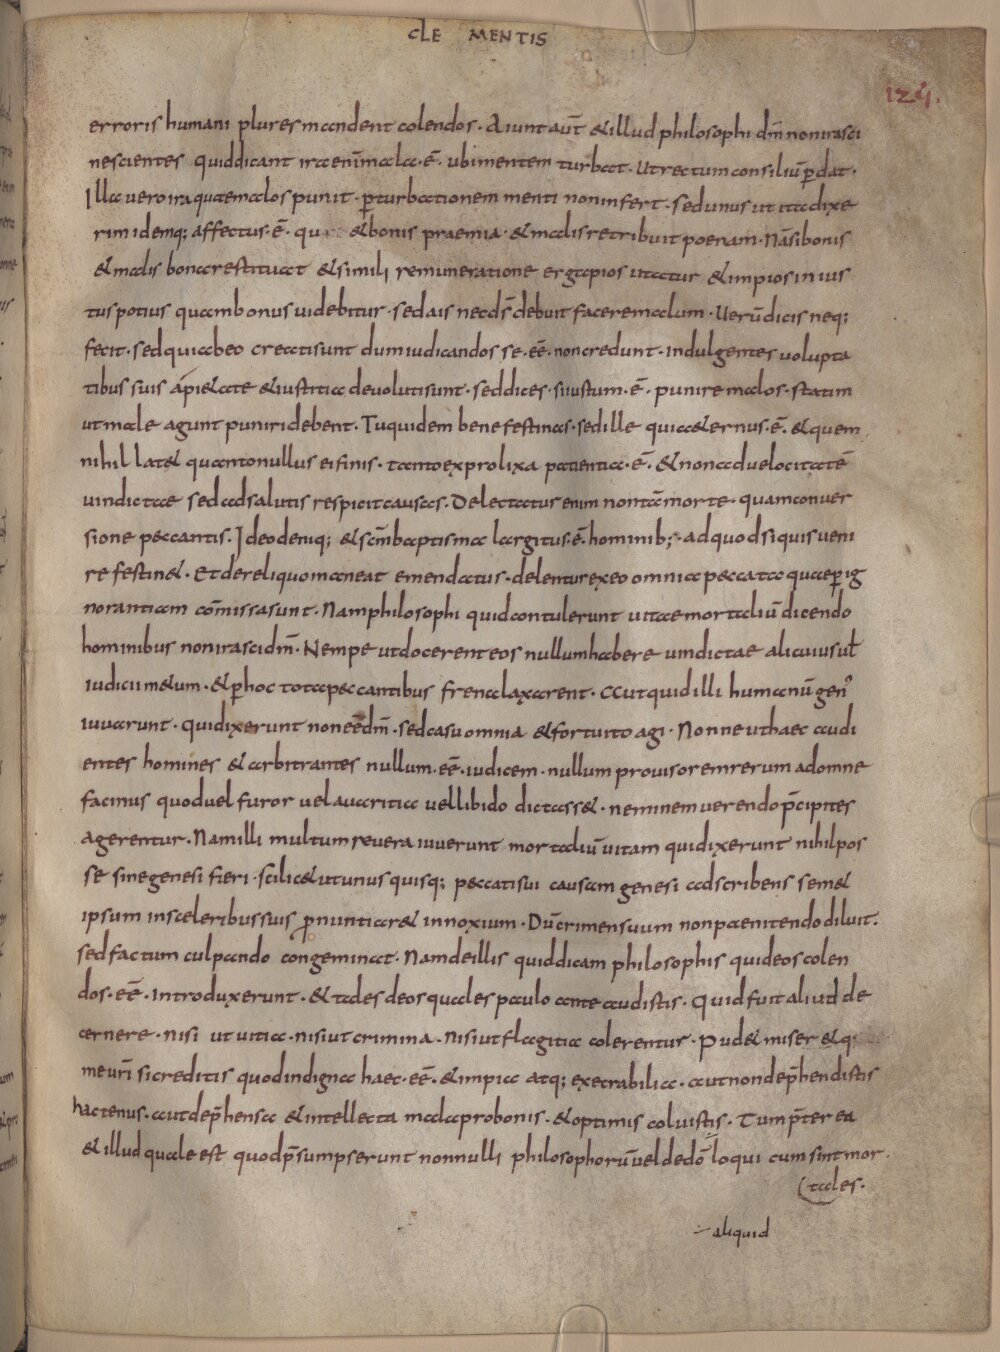 CLEMENTIS
124.
erroris humani plures mandent colendos · Aiunt aut̄ & illud philosophi dm̄ non irasci
nescientes quid dicant ira enim̄ mala · ē · ubi mentem turbat · ut rectum consiliū p̄dat ·
Illa vero ira quae malos punit · p̄turbationem menti non infert · sed unus ut ita dixe
rim idemq; affectus · ē · qu & bonis praemia · & malis retribuit poenam · Nā si bonis
& malis bona restituat & simili remuneratione erga pios utatur & impios inius
tus potius quam bonus videbitur · sed ais nec ds̄ debuit facere malum · Verū dicis neq;
fecit · sed qui ab eo creati sunt dum iudicandos se · eē · non credunt · indulgentes volupta
tibus suis a pi&ate & iustitia devoluti sunt · sed dices · si iustum · ē · punire malos · statim
ut male agunt puniri debent · Tu quidem bene festinas · sed ille qui a&ernus · ē · & quem
nihil lat& quanto nullus ei finis · tanto ex prolixa patientia · ē · & non ad velocitatē
vindictae sed ad salutis respicit causas · Delectatur enim non tā morte · quam conver
sione peccantis · Ideo deniq; & scm̄ baptisma largitus · ē · hominib; · ad quod si quis veni
re festin& · Et de reliquo maneat emendatus · delentur ex eo omnia peccata quae p̄ ig
norantiam cōmissa sunt · Nam philosophi quid contulerunt vitae mortaliū dicendo
hominibus non irasci dm̄ · Nempe ut docerent eos nullum habere vindictae alicuius ut̄
iudicii m&um · & p̄ hoc tota peccantibus frena laxarent · Aut quid illi humanū gen'
iuvarunt · Qui dixerunt non eē dm̄ · sed casu omnia & fortuito agi · Nonne ut haec audi
entes homines & arbitrantes nullum · eē · iudicem · nullum provisorem rerum ad omne
facinus quod vel furor vel avaritia vel libido dictass& · neminem verendo p̄cipites
agerentur · Nam illi multum revera iuverunt mortaliū vitam qui dixerunt nihil pos
se sine genesi fieri · scilic& ut unus quisq; peccati sui causam genesi adscribens sem&
ipsum in sceleribus suis p̄nuntiar& innoxium · Dū crimen suum non paenitendo diluit ·
sed factum culpando congeminat · Nam de illis quid dicam philosophis qui deos colen
dos · eē · introduxerunt · & tales deos quales paulo ante audistis · Quid fuit aliud de
cernere · nisi ut vitia · nisi ut crimina · nisi ut flagitia colerentur · Pud& miser & q·
me vr̄i si creditis quod indigna haec · eē · & impia atq; execrabilia · aut non dep̄hendistis
hactenus · aut dep̄hensa & intellecta mala pro bonis · & optimis coluistis · Tum p̄ter ea
& illud quale est quod p̄sumpserunt nonnulli philosophorū vel de dō loqui cum sint mor
tales ·
aliquid